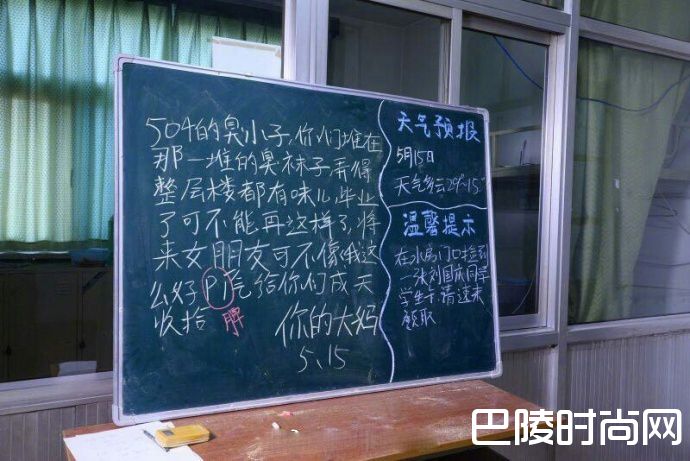 504的臭小子,你们堆在
那一堆的臭袜子,弄得
整层楼都有味儿,毕业
了可不能再这样了,将
来女朋友可不像俄这
么好Pi气给你们成天
收拾
脾
你的大妈
5、15
天气预报
5月15日
天气多云29°~15°
温馨提示
在水房门口捡到
一张刘国庆同学
学生卡请速来
领取
巴陵时尚网